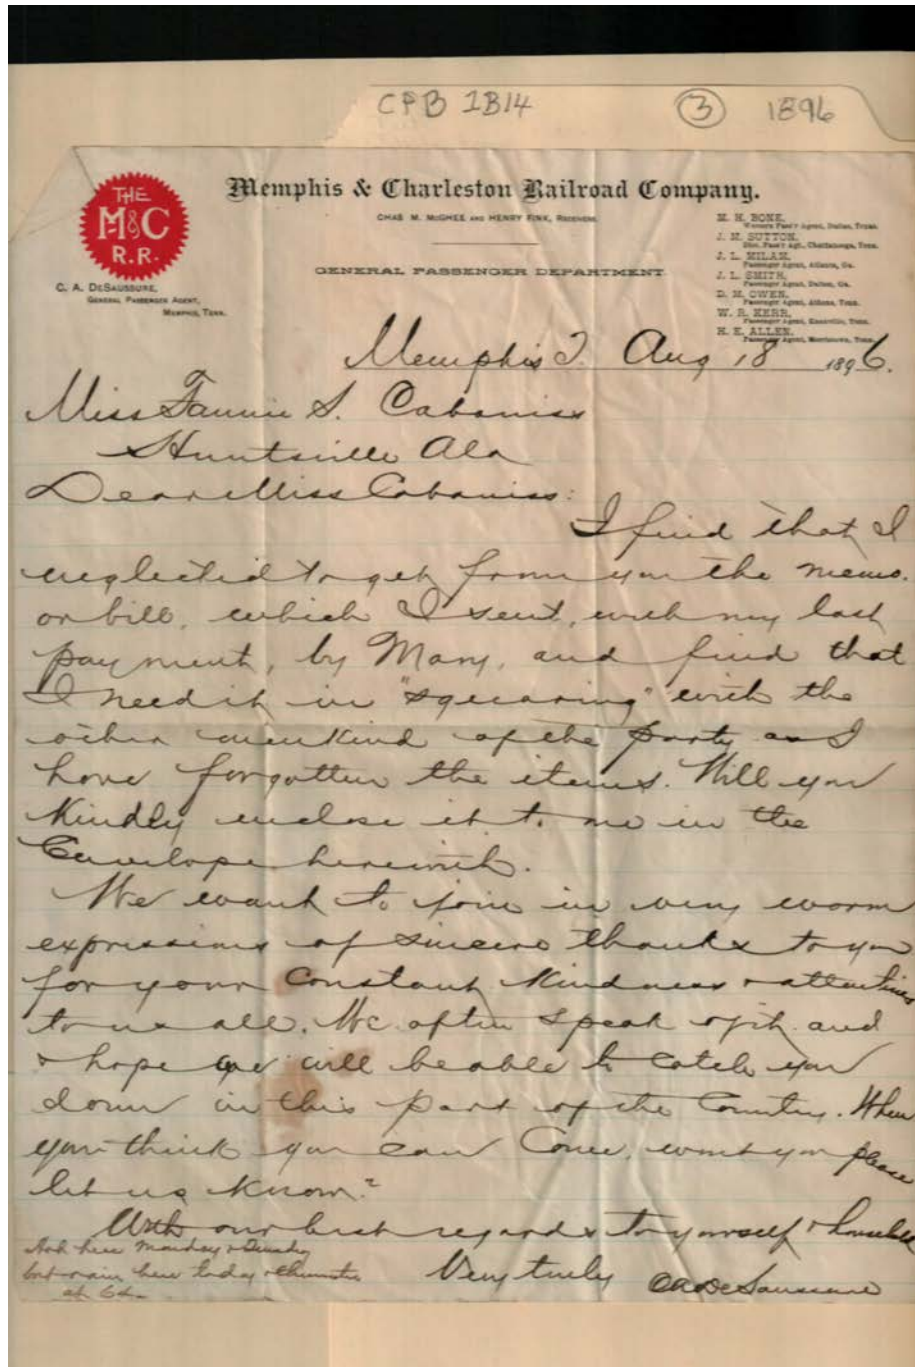 CPB 1B14 ③ 1896
THE
M&C
R.R.
Memphis & Charleston Railroad Company.
CHAS M. McGHEE AND HENRY FINK, RECEIVERS.
GENERAL PASSENGER DEPARTMENT
C. A. DESAUSSURE,
GENERAL PASSENGER AGENT,
MEMPHIS, TENN.
M. H. BONE,
Western Pass'r Agent, Dallas, Texas.
J. M. SUTTON,
Dist. Pass'r Agt., Chattanooga, Tenn.
J. L. MILAM,
Passenger Agent, Atlanta, Ga.
J. L. SMITH,
Passenger Agent, Dalton, Ga.
D. M. OWEN,
Passenger Agent, Athens, Tenn.
W. R. KERR,
Passenger Agent, Knoxville, Tenn.
H. E. ALLEN,
Passenger Agent, Morristown, Tenn.
Memphis T. Aug 18 1896.
Miss Fannie S. Cabaniss
Huntsville Ala
Dear Miss Cabaniss:
I find that I
neglected to get from you the memo.
or bill, which I sent, with my last
payment, by Mary, and find that
I need it in "squaring" with the
other menkind of the party as I
have forgotten the items. Will you
Kindly enclose it to me in the
Envelope herewith.
We want to join in very warm
expressions of sincere thanks to you
for your constant Kindness & attentions
to us all. We often speak of it and
& hope we will be able to catch you
down in this part of the Country. When
you think you can Come, wont you please
let us know?
With our best regards to yourself & household
Very truly CA DeSaussure
Hot here Monday & Sunday
but rain here today & thermometer
at 64